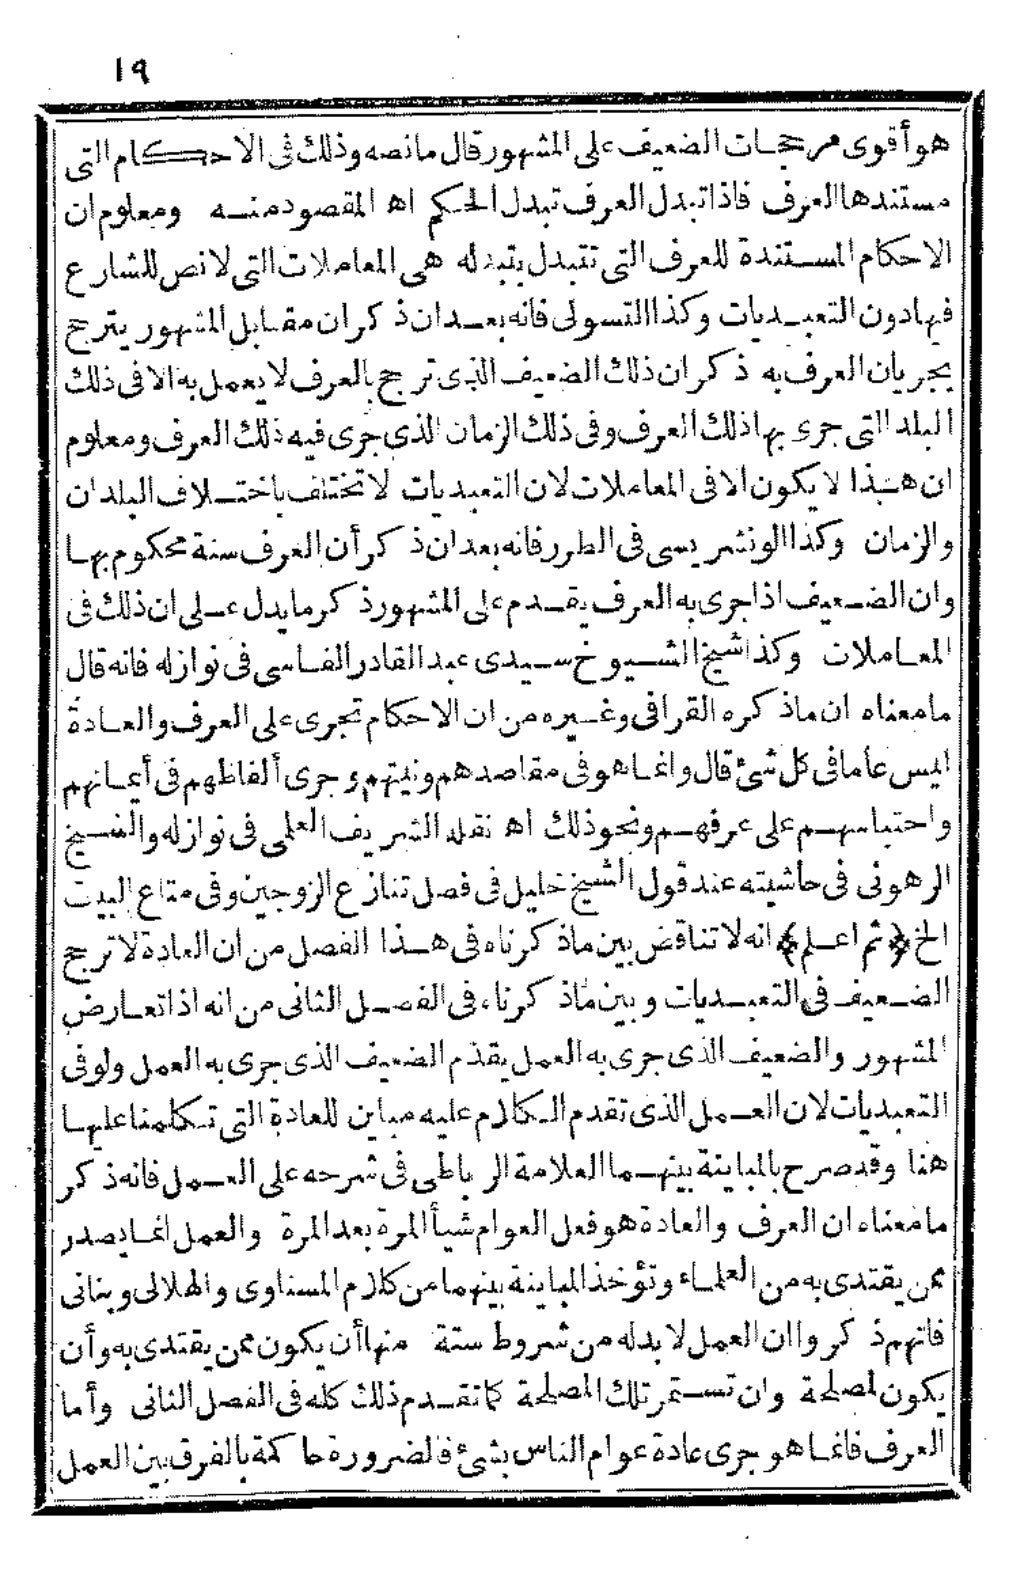 ١٩
هو أقوى مرجحات الضعيف على المشهور قال ما نصه وذلك فى الاحكام التى
مستندها العرف فاذا تبدل العرف تبدل الحكم اه المقصود منه ومعلوم ان
الاحكام المستندة للعرف التى تتبدل بتبدله هى المعاملات التى لا نص للشارع
فيها دون التعبديات وكذا التسولى فانه بعد ان ذكر ان مقابل المشهور يترجح
بجريان العرف به ذكر ان ذلك الضعيف الذى ترجح بالعرف لا يعمل به الا فى ذلك
البلد التى جرى بها ذلك العرف وفى ذلك الزمان الذى جرى فيه ذلك العرف ومعلوم
ان هذا لا يكون الا فى المعاملات لان التعبديات لا تختلف باختلاف البلدان
والزمان وكذا الونشريسى فى الطرر فانه بعد ان ذكر أن العرف سنة محكوم بها
وان الضعيف اذا جرى به العرف يقدم على المشهور ذكر ما يدل على ان ذلك فى
المعاملات وكذا شيخ الشيوخ سيدى عبد القادر الفاسى فى نوازله فانه قال
ما معناه ان ما ذكره القرافى وغيره من ان الاحكام تجرى على العرف والعادة
ليس عاما فى كل شئ قال وانما هو فى مقاصدهم ونيتهم وجرى ألفاظهم فى أيمانهم
واحتباسهم على عرفهم ونحو ذلك اه نقله الشريف العلمى فى نوازله والشيخ
الرهونى فى حاشيته عند قول الشيخ خليل فى فصل تنازع الزوجين وفى متاع البيت
الخ ﴿ثم اعلم﴾ انه لا تناقض بين ما ذكرناه فى هذا الفصل من ان العادة لا ترجح
الضعيف فى التعبديات وبين ما ذكرناه فى الفصل الثانى من انه اذا تعارض
المشهور والضعيف الذى جرى به العمل يقدم الضعيف الذى جرى به العمل ولو فى
التعبديات لان العمل الذى تقدم الكلام عليه مباين للعادة التى تكلمنا عليها
هنا وقد صرح بالمباينة بينهما العلامة الرباطى فى شرحه على العمل فانه ذكر
ما معناه ان العرف والعادة هو فعل العوام شيأ المرة بعد المرة والعمل انما يصدر
ممن يقتدى به من العلماء وتؤخذ المباينة بينهما من كلام المسناوى والهلالى وبنانى
فانهم ذكروا ان العمل لا بد له من شروط ستة منها أن يكون ممن يقتدى به وأن
يكون لمصلحة وان تستمر تلك المصلحة كما تقدم ذلك كله فى الفصل الثانى وأما
العرف فانما هو جرى عادة عوام الناس بشئ فالضرورة حاكمة بالفرق بين العمل